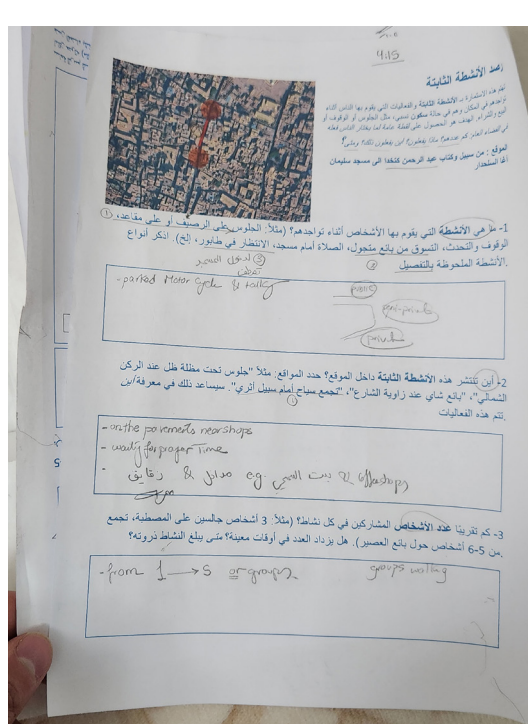 4.15
رصد الأنشطة الثابتة
تهتم هذه الاستمارة بـ الأنشطة الثابتة والفعاليات التي يقوم بها الناس أثناء
تواجدهم في المكان وهم في حالة سكون نسبي، مثل الجلوس أو الوقوف أو
البيع والشراء. الهدف هو الحصول على لقطة عامة لما يختار الناس فعله
في الفضاء العام: كم عددهم؟ ماذا يفعلون؟ أين يفعلون ذلك؟ ومتى؟
الموقع : من سبيل وكتاب عبد الرحمن كتخدا الى مسجد سليمان
أغا السلحدار
1- ما هي الأنشطة التي يقوم بها الأشخاص أثناء تواجدهم؟ (مثلاً: الجلوس على الرصيف أو على مقاعد،
الوقوف والتحدث، التسوق من بائع متجول، الصلاة أمام مسجد، الانتظار في طابور، إلخ). اذكر أنواع
الأنشطة الملحوظة بالتفصيل.
- parked Motor cycle & talking
public
semi-private
private
2- أين تنتشر هذه الأنشطة الثابتة داخل الموقع؟ حدد المواقع: مثلاً "جلوس تحت مظلة ظل عند الركن
الشمالي"، "بائع شاي عند زاوية الشارع"، "تجمع سياح أمام سبيل أثري". سيساعد ذلك في معرفة/ين
تتم هذه الفعاليات.
- on the pavements near shops
- waiting for prayer Time
- e.g. & مداخل
3- كم تقريبًا عدد الأشخاص المشاركين في كل نشاط؟ (مثلاً: 3 أشخاص جالسين على المصطبة، تجمع
من 5-6 أشخاص حول بائع العصير). هل يزداد العدد في أوقات معينة؟ متى يبلغ النشاط ذروته؟
- from 1 → 5 or groups groups walking